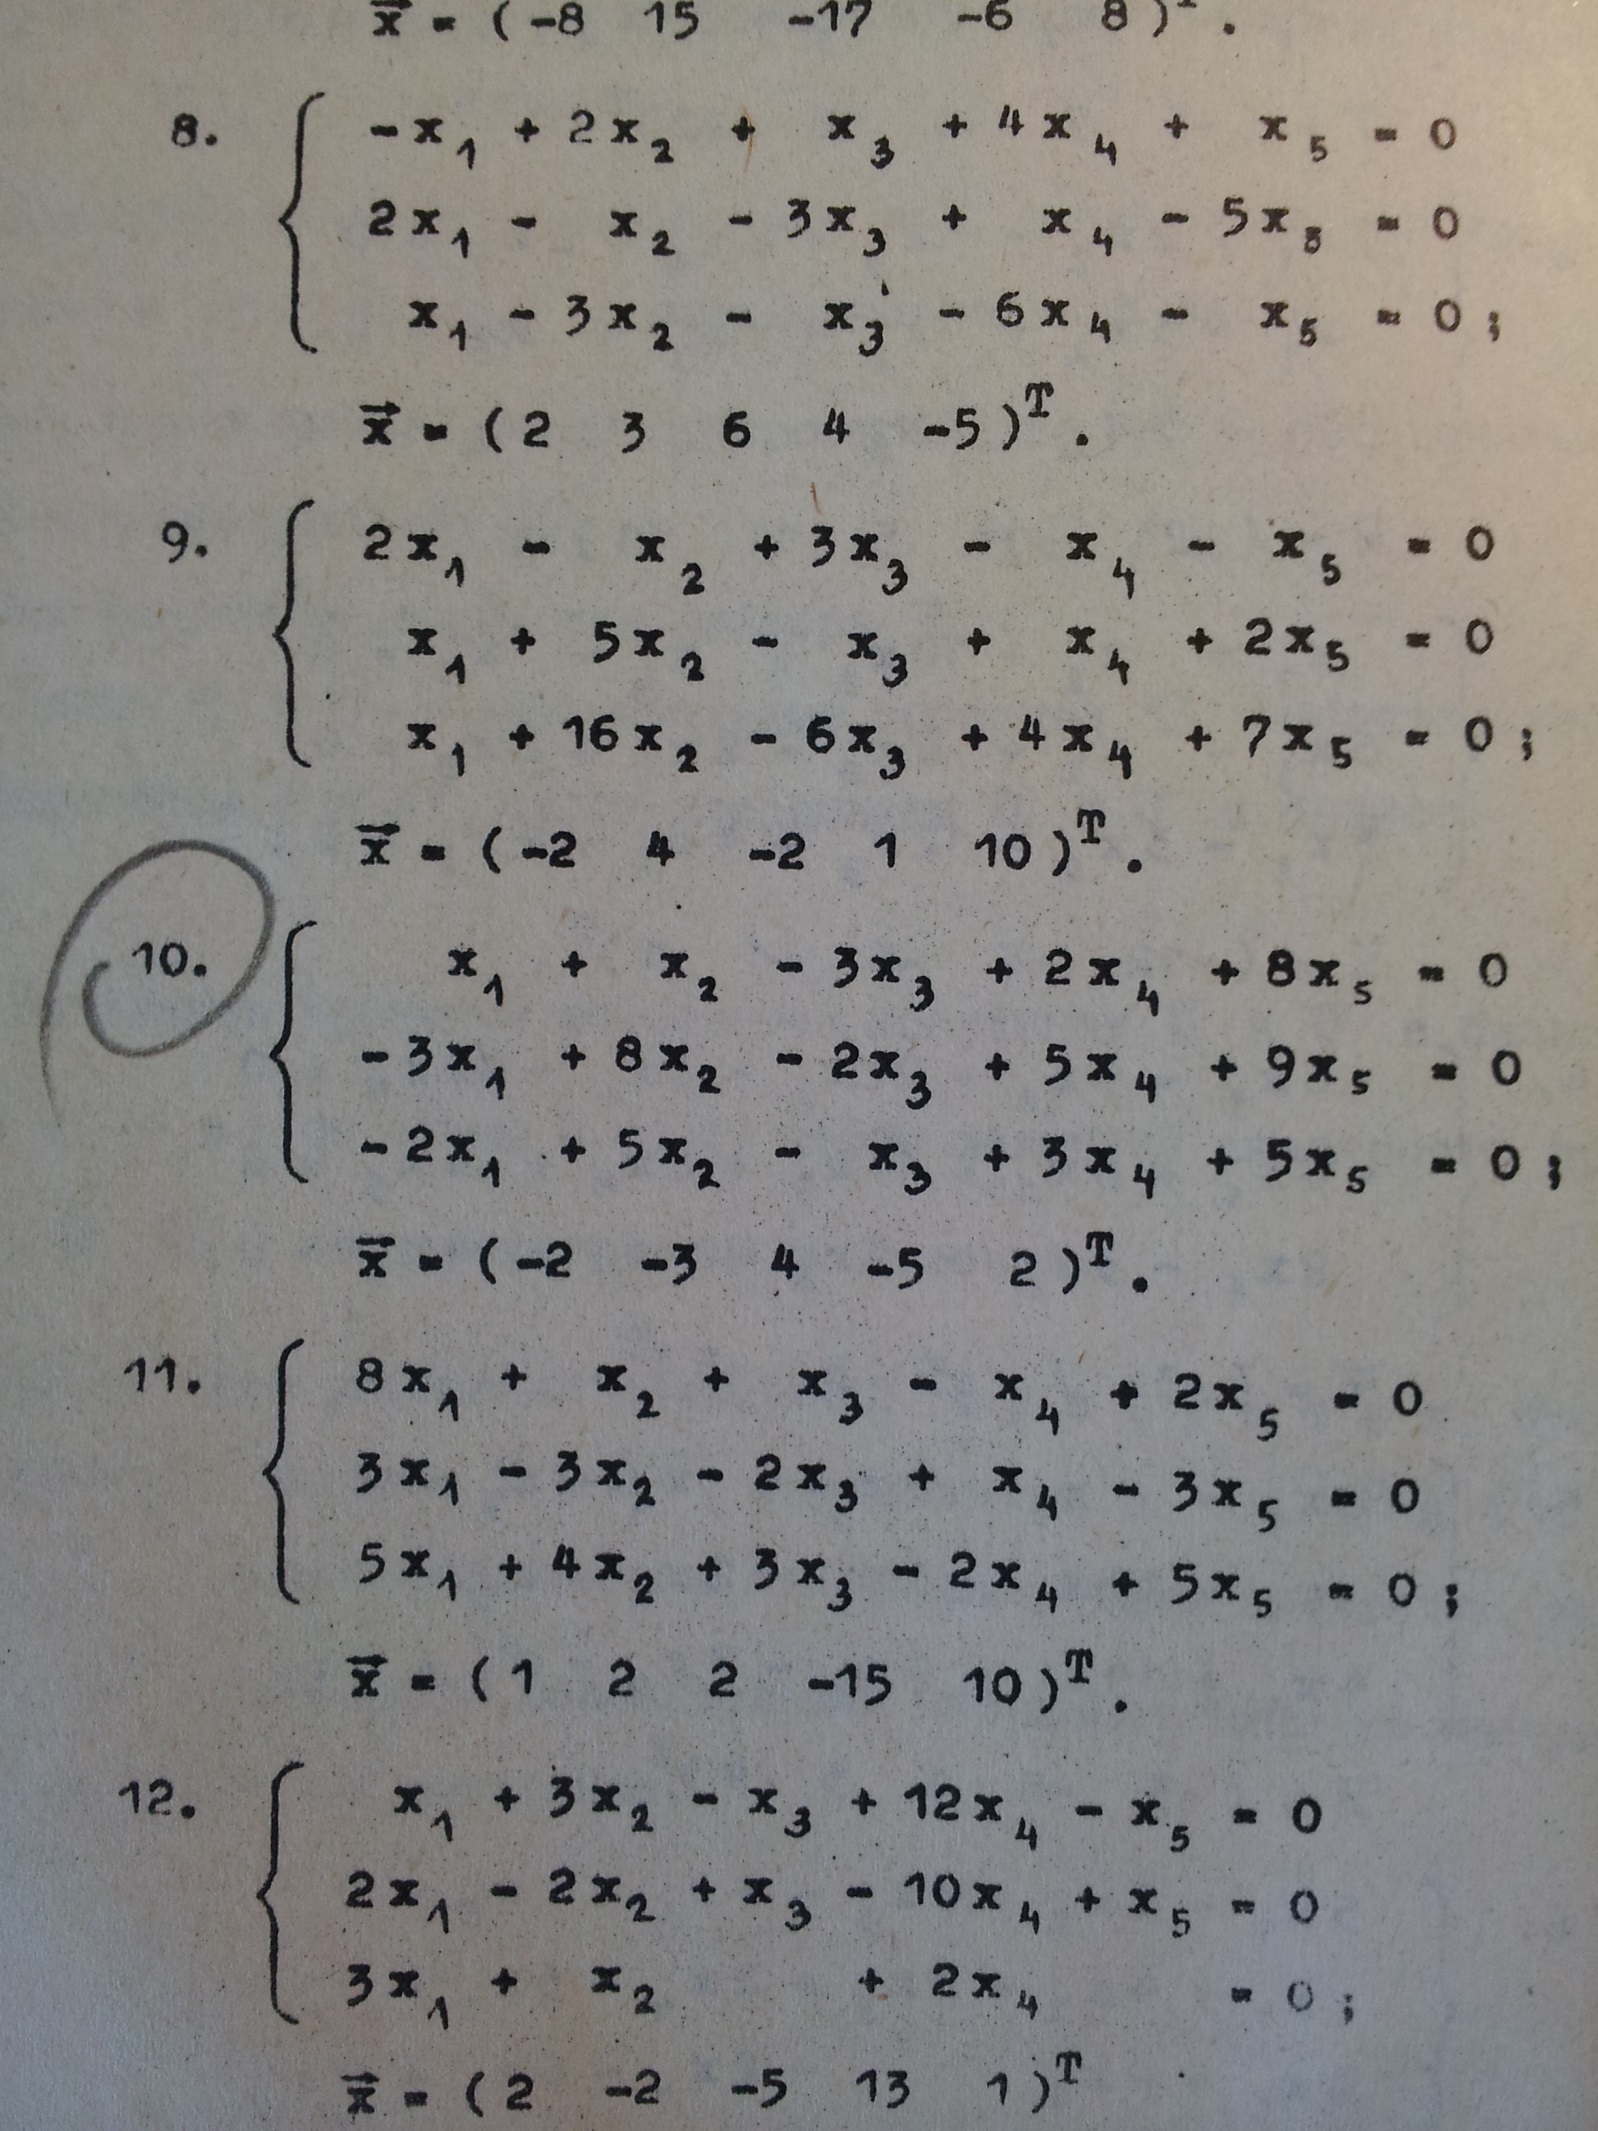 x⃗ = ( -8 15 -17 -6 8 )ᵀ .
8. { -x₁ + 2x₂ + x₃ + 4x₄ + x₅ = 0
2x₁ - x₂ - 3x₃ + x₄ - 5x₅ = 0
x₁ - 3x₂ - x₃ - 6x₄ - x₅ = 0 ;
x⃗ = ( 2 3 6 4 -5 )ᵀ .
9. { 2x₁ - x₂ + 3x₃ - x₄ - x₅ = 0
x₁ + 5x₂ - x₃ + x₄ + 2x₅ = 0
x₁ + 16x₂ - 6x₃ + 4x₄ + 7x₅ = 0 ;
x⃗ = ( -2 4 -2 1 10 )ᵀ .
10. { x₁ + x₂ - 3x₃ + 2x₄ + 8x₅ = 0
-3x₁ + 8x₂ - 2x₃ + 5x₄ + 9x₅ = 0
-2x₁ + 5x₂ - x₃ + 3x₄ + 5x₅ = 0 ;
x⃗ = ( -2 -3 4 -5 2 )ᵀ .
11. { 8x₁ + x₂ + x₃ - x₄ + 2x₅ = 0
3x₁ - 3x₂ - 2x₃ + x₄ - 3x₅ = 0
5x₁ + 4x₂ + 3x₃ - 2x₄ + 5x₅ = 0 ;
x⃗ = ( 1 2 2 -15 10 )ᵀ .
12. { x₁ + 3x₂ - x₃ + 12x₄ - x₅ = 0
2x₁ - 2x₂ + x₃ - 10x₄ + x₅ = 0
3x₁ + x₂ + 2x₄ = 0 ;
x⃗ = ( 2 -2 -5 13 1 )ᵀ